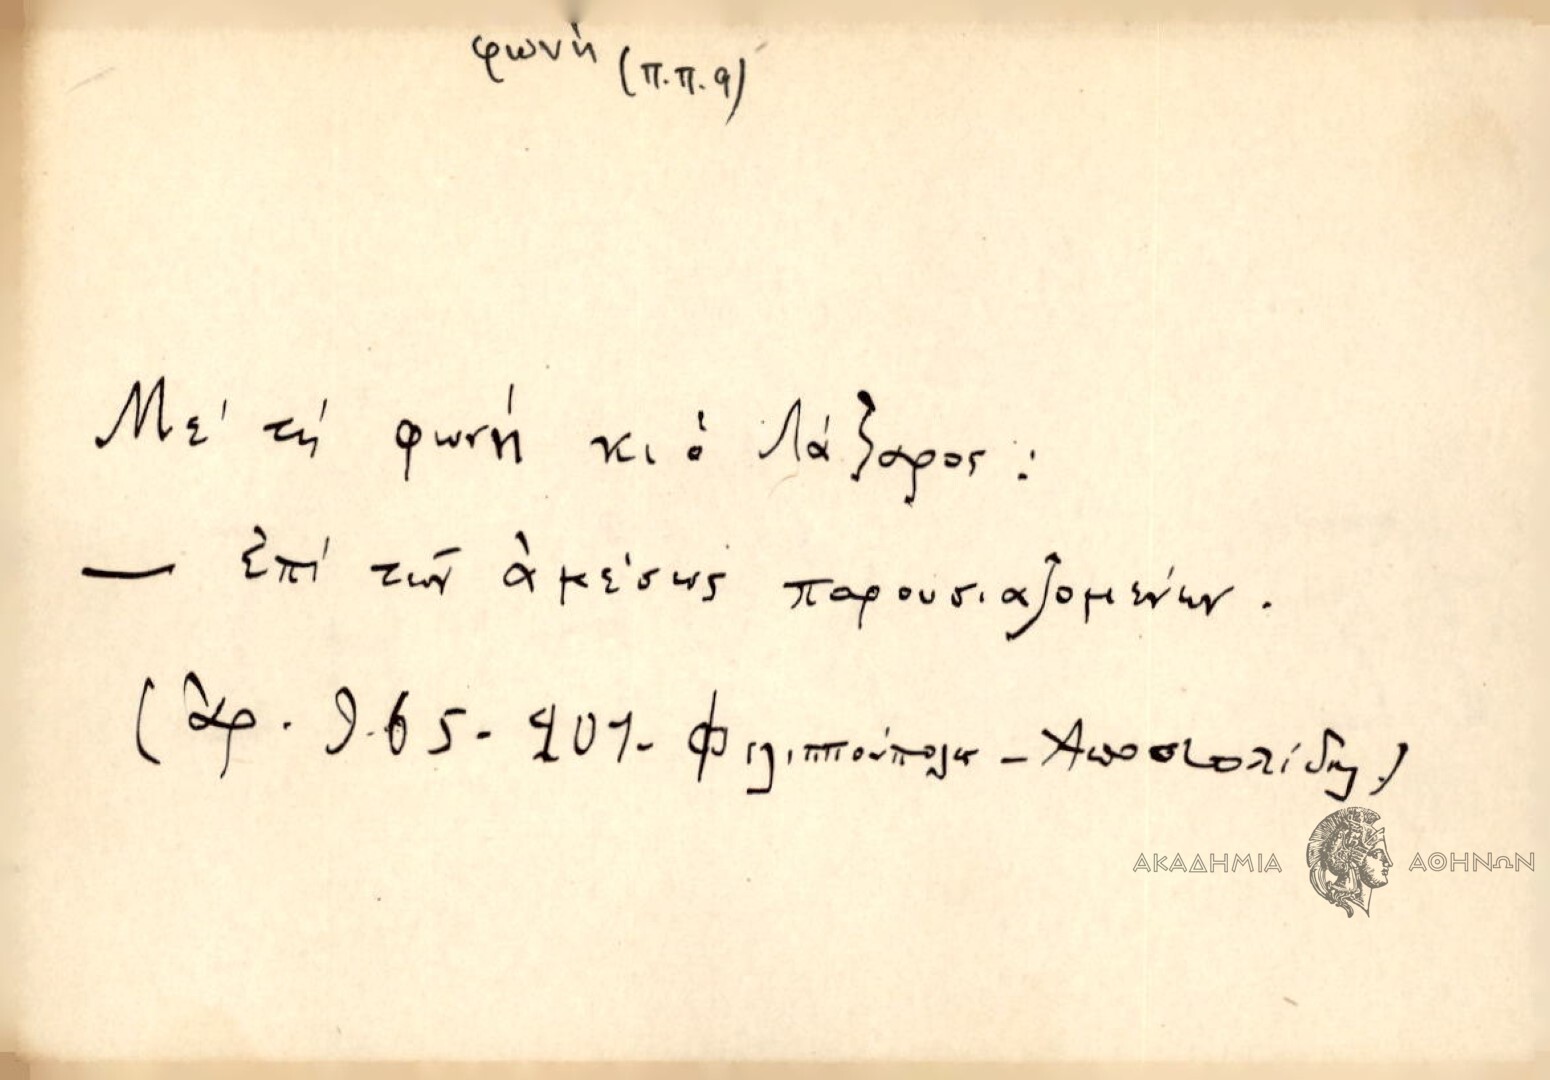 φωνή (π.π. 9)
Μέ τή φωνή κι ὁ Λάζαρος:
— ἐπί τῶν ἀμέσως παρουσιαζομένων.
(ἀρ. 965 - Φιλιππούπολις - Ἀποστολίδης)
ΑΚΑΔΗΜΙΑ ΑΘΗΝΩΝ